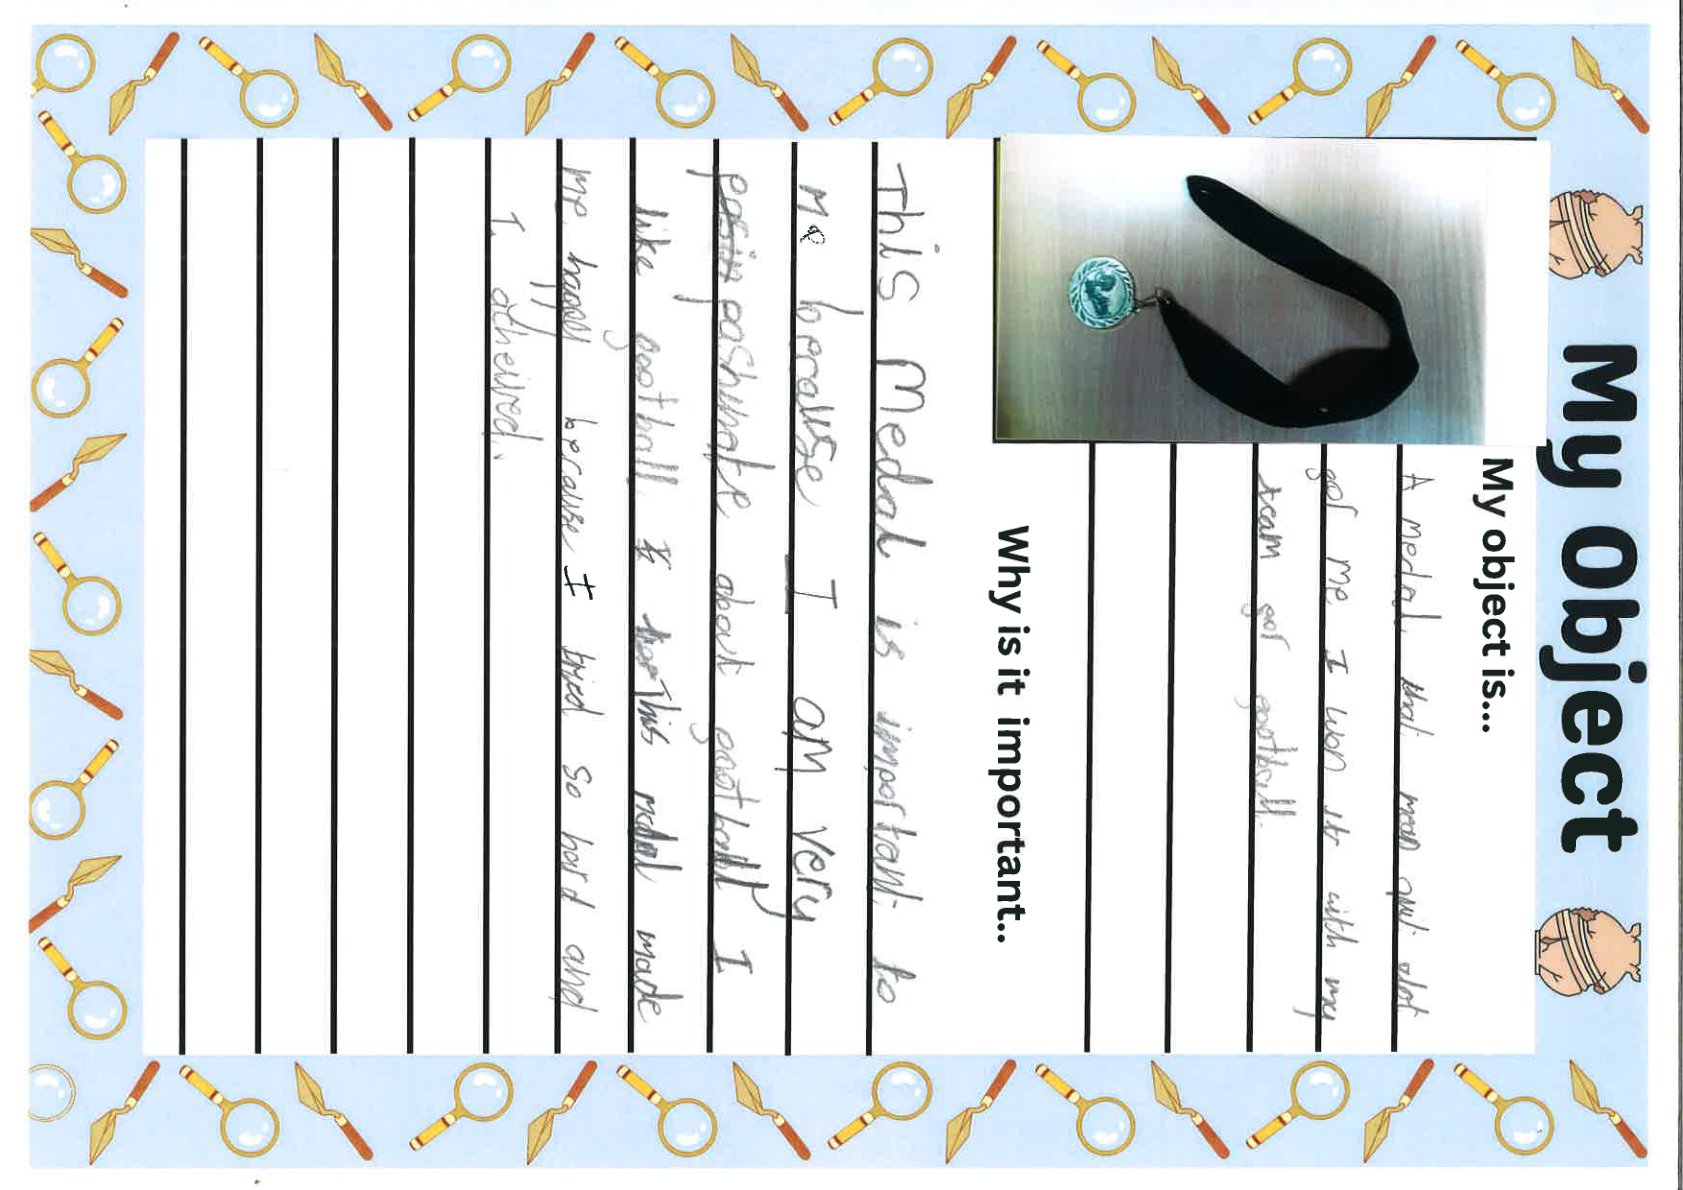 My Object
My object is...
A medal that mean quit alot
for me I won it with my
team for football.
Why is it important..
This Medal is important to
me because I am very
pasin pashunate about football I
like football I This medal made
me happy because I tried so hard and
I acheived.